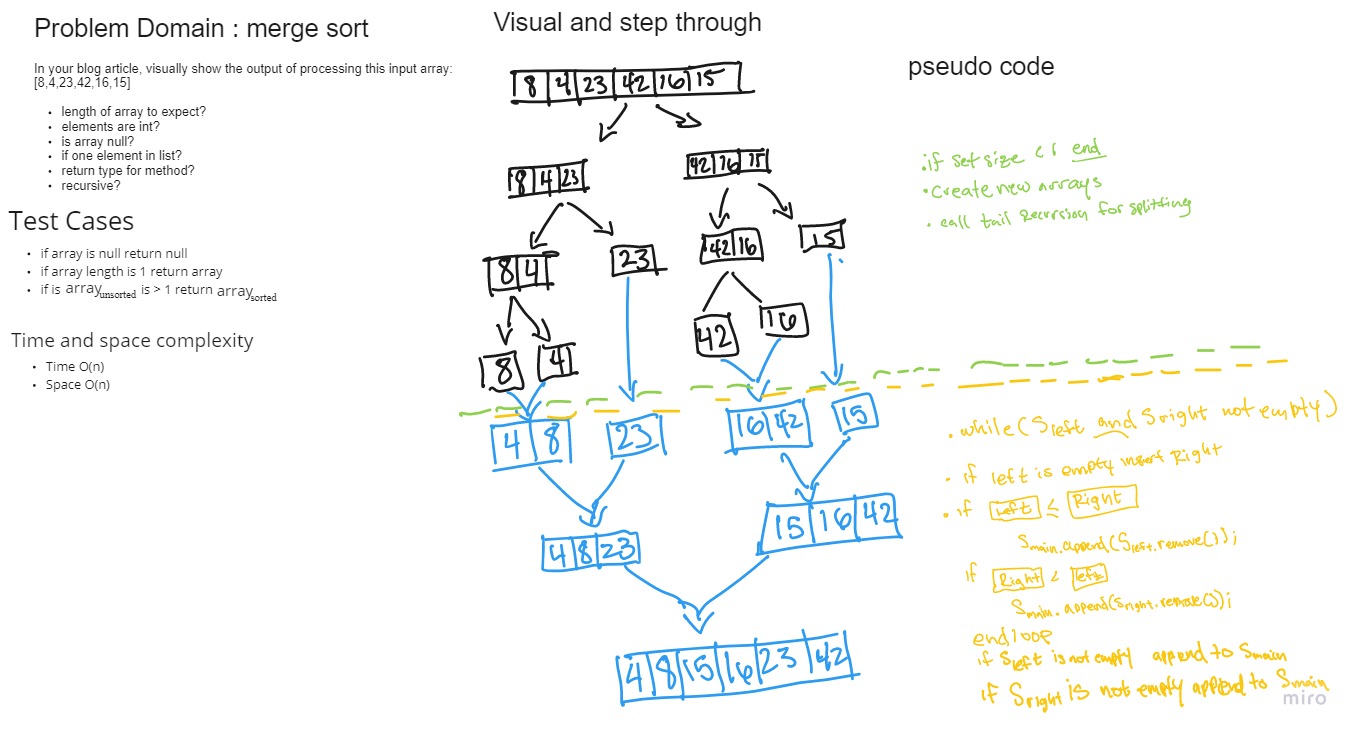 Problem Domain : merge sort
In your blog article, visually show the output of processing this input array:
[8,4,23,42,16,15]
• length of array to expect?
• elements are int?
• is array null?
• if one element in list?
• return type for method?
• recursive?
Test Cases
• if array is null return null
• if array length is 1 return array
• if is array unsorted is > 1 return array sorted
Time and space complexity
• Time O(n)
• Space O(n)
Visual and step through
8 4 23 42 16 15
8 4 23
42 16 15
8 4
23
42 16
15
8
4
42
16
4 8
23
16 42
15
4 8 23
15 16 42
4 8 15 16 23 42
pseudo code
• if set size end
• create new arrays
• call tail Recursion for splitting
• while (Sleft and Sright not empty)
• if left is empty insert Right
• if Left ≤ Right
Smain.append(Sleft.remove());
if Right < left
Smain.append(Sright.remove());
end loop
if Sleft is not empty append to Smain
if Sright is not empty append to Smain
miro